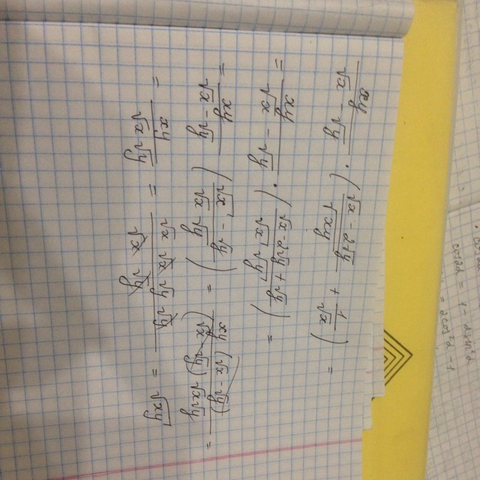 xy/(√x - √y) · ((√x - 2√y)/√xy + 1/√x) =
= xy/(√x - √y) · ((√x - 2√y + √y)/(√x √y)) =
= xy/(√x - √y) ((√x - √y)/(√x √y)) = xy(√x - √y)/((√x - √y) √x √y) =
= xy/(√x √y) = √x √x √y √y/(√x √y) = √xy